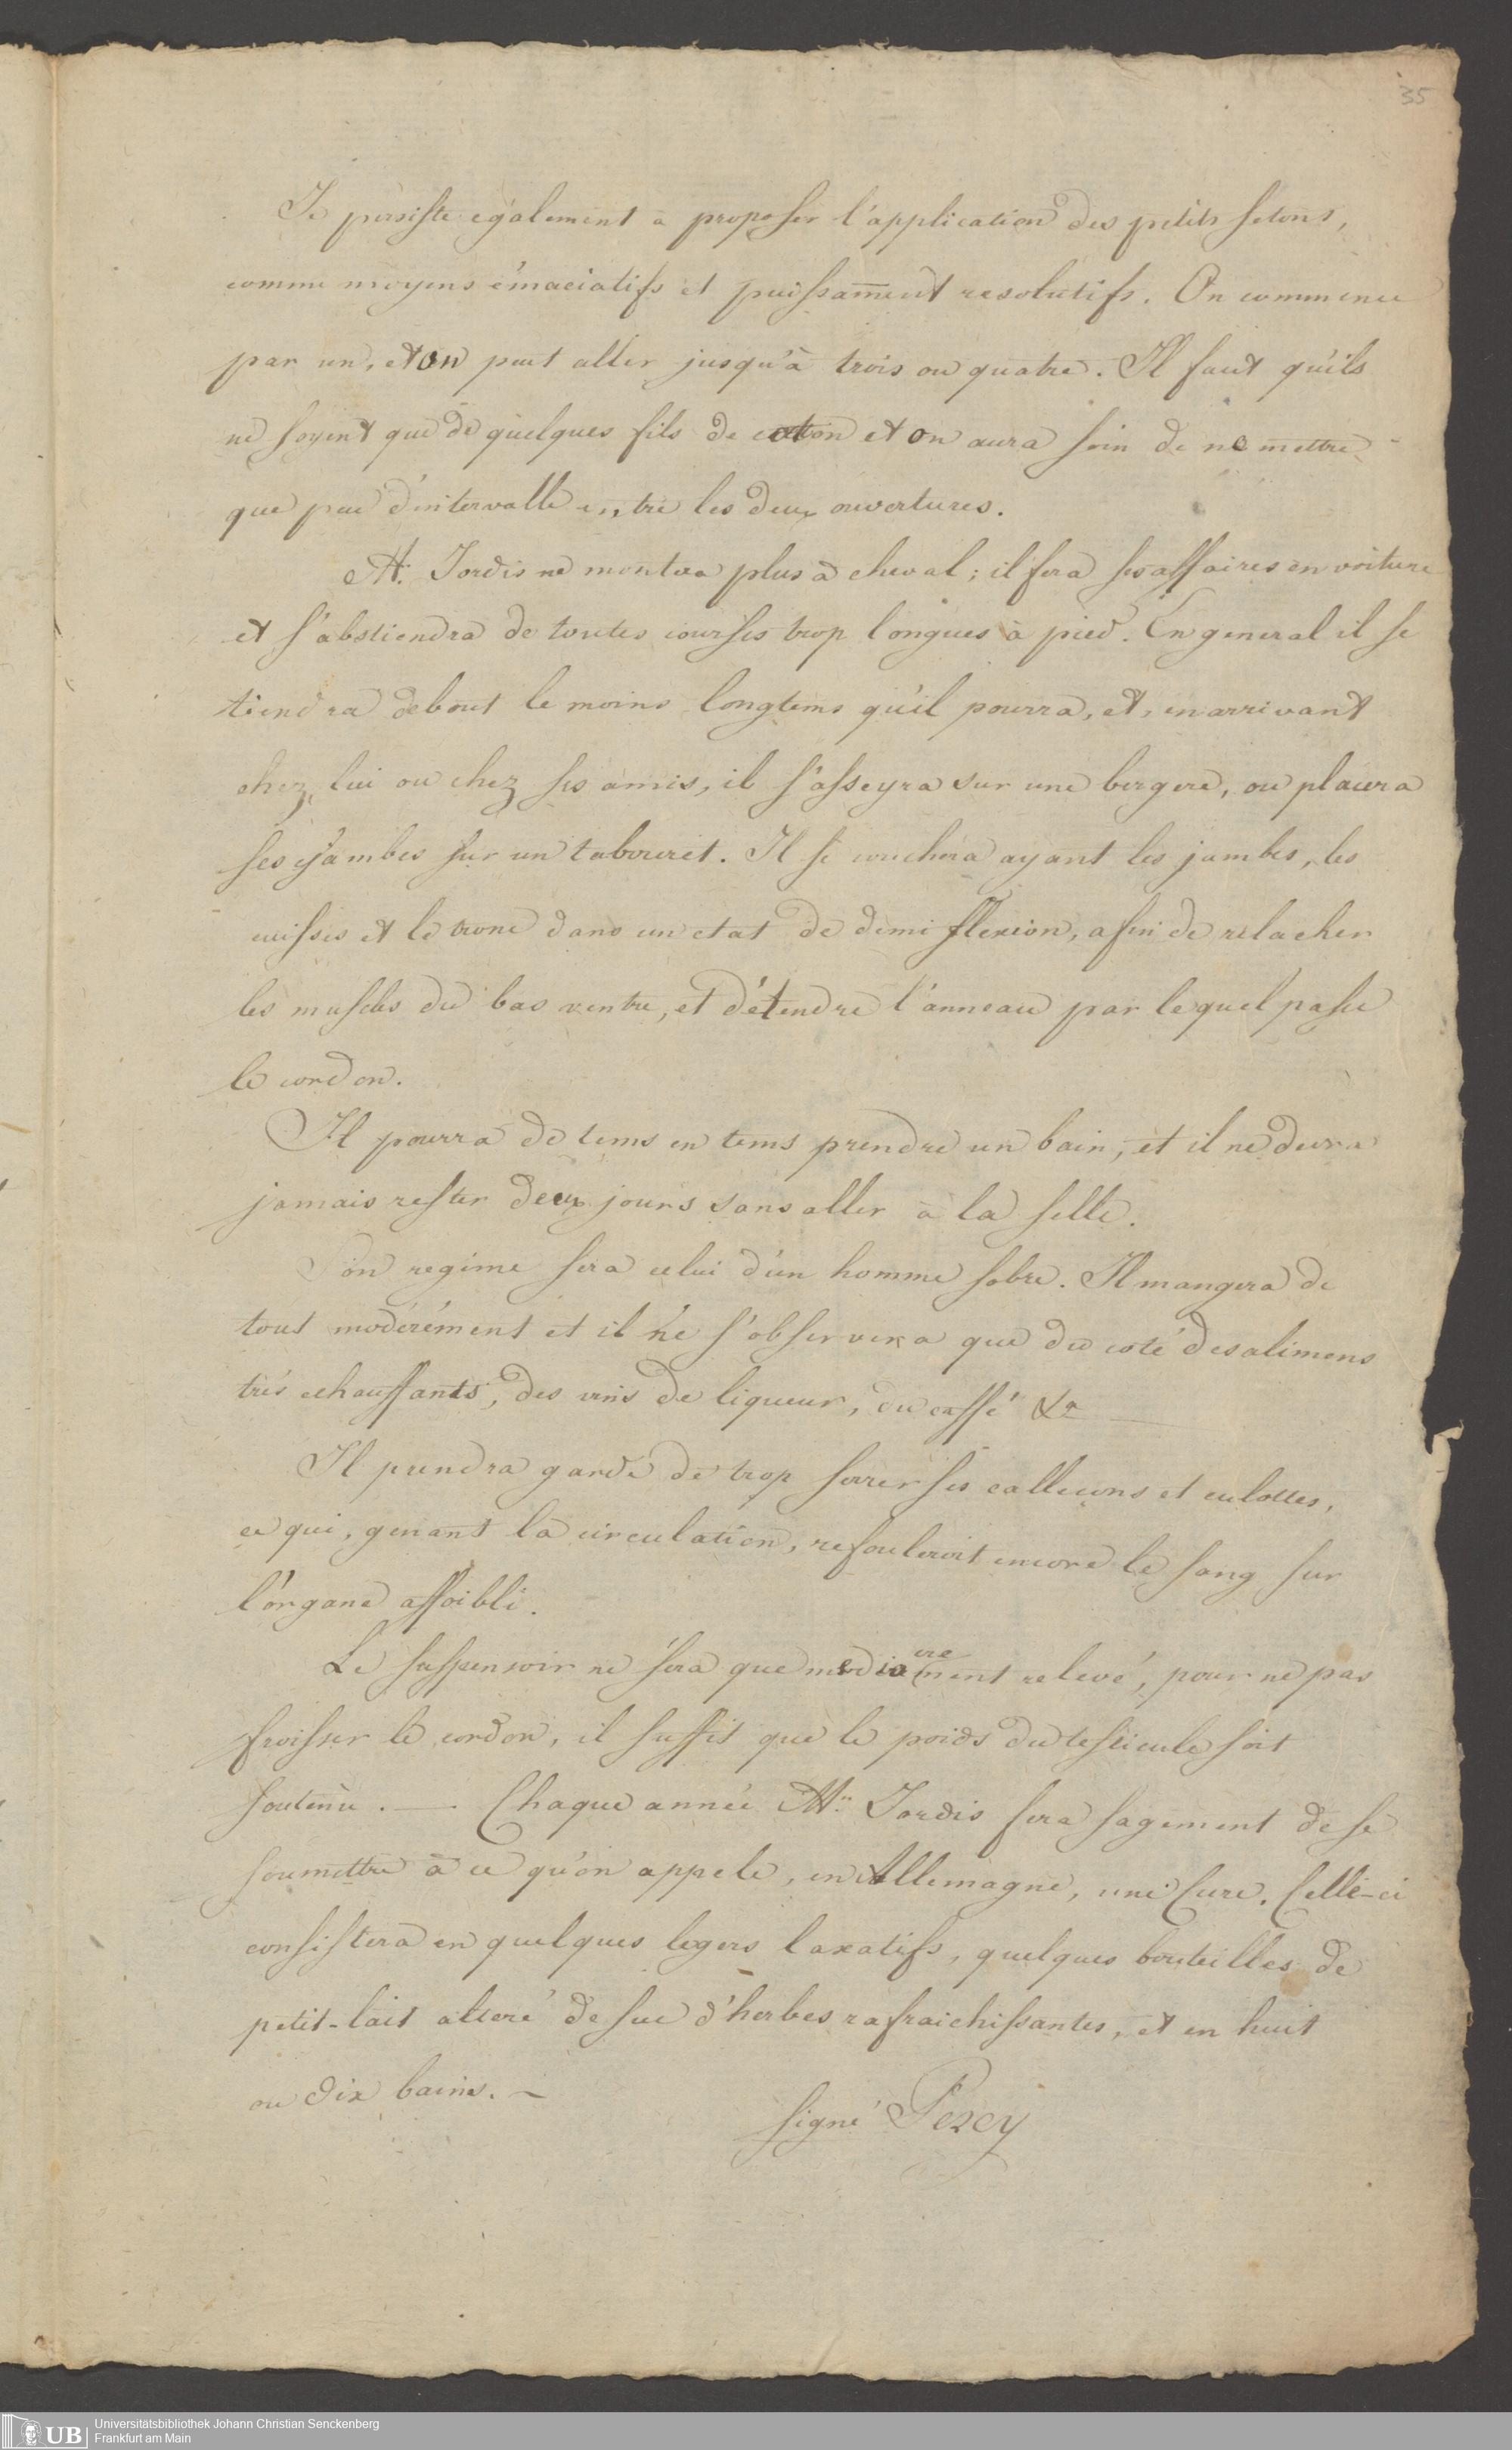 35
Je persiste également à proposer l'application des petits setons,
comme moyens émaciatifs et puissam̄ent resolutifs. On commence
par un, et on peut aller jusqu'à trois ou quatre. Il faut qu'ils
ne soyent que de quelques fils de coton et on aura soin de ne mettre
que peu d'intervalle entre les deux ouvertures.
M. Jordis ne montra plus à cheval; il fera ses affaires en voiture
et s'abstiendra de toutes courses trop longues à pied. En general il se
tiendra debout le moins longtems qu'il pourra, et, en arrivant
chez lui ou chez ses amis, il s'asseyra sur une bergere, ou placera
ses jambes sur un tabouret. Il se couchera ayant les jambes, les
cuisses et le tronc dans un etat de demi flexion, afin de relacher
les muscles du bas ventre, et détendre l'anneau par lequel passe
le cordon.
Il pourra de tems en tems prendre un bain, et il ne devra
jamais rester deux jours sans aller à la selle.
Son regime sera celui d'un homme sobre. Il mangera de
tout modérément et il ne s'observera que du coté des alimens
très echauffants, des vins de liqueur, du caffé &a
Il prendra garde de trop serrer ses calleçons et culottes,
ce qui, genant la circulation, refouleroit encore le sang sur
l'organe affoibli.
Le suspensoir ne sera que mediocrement relevé, pour ne pas
froisser le cordon, il suffit que le poids du testicule soit
soutenu. — Chaque année Mr. Jordis fera sagement de se
soumettre à ce qu'on appele, en Allemagne, une Cure. Celle-ci
consistera en quelques legers laxatifs, quelques bouteilles de
petit-lait alteré de suc d'herbes rafraichissantes, et en huit
ou dix bains. —
signé Percy
UB
Universitätsbibliothek Johann Christian Senckenberg
Frankfurt am Main